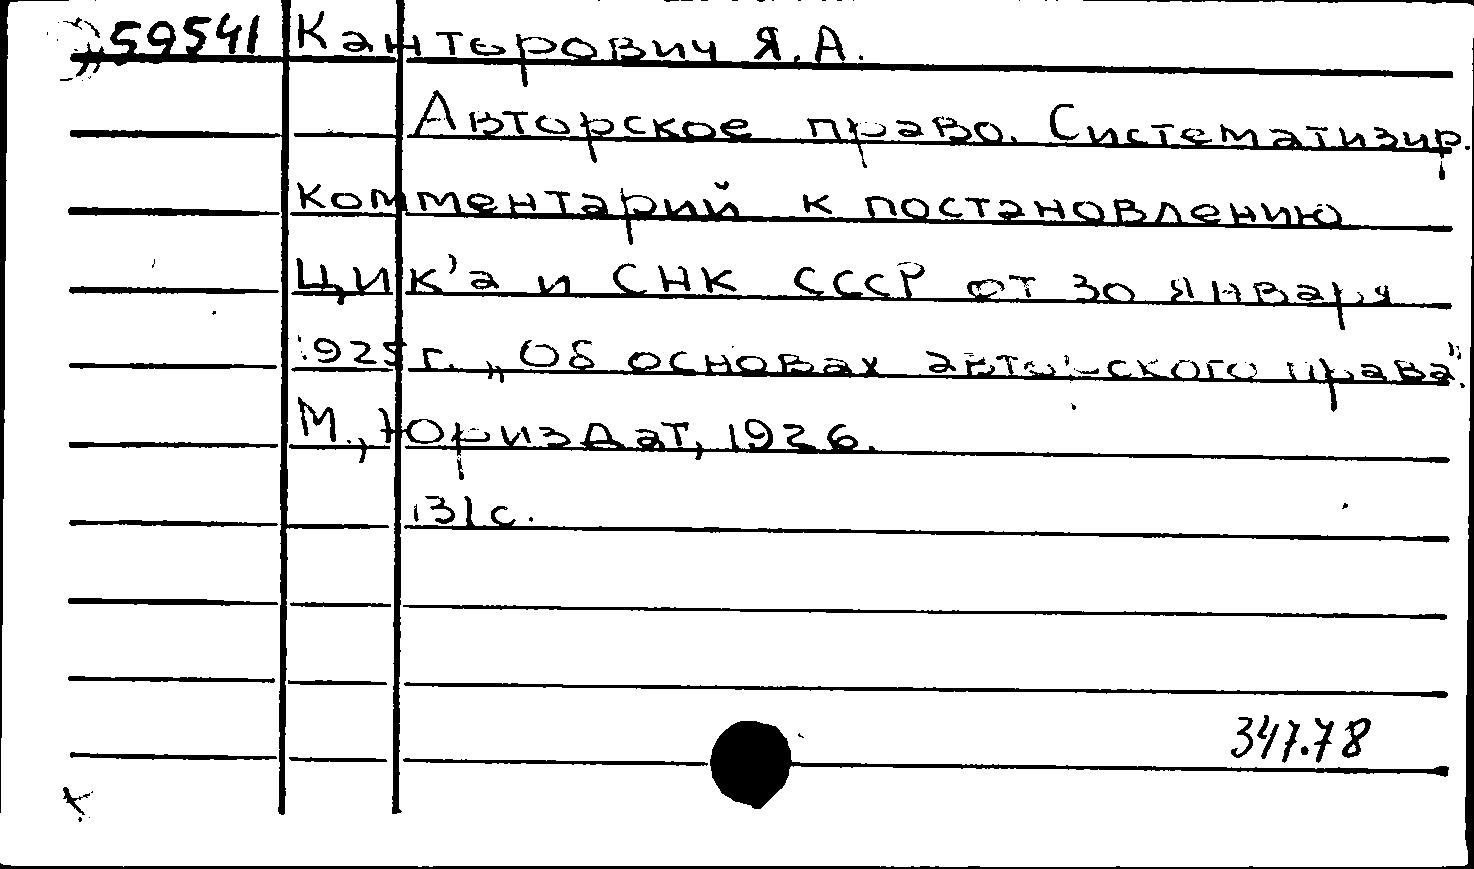 59541 Канторович Я.А.
Авторское право. Систематизир.
комментарий к постановлению
ЦИК'а и СНК СССР от 30 января
1925 г. „Об основах авторского права".
М., Юриздат, 1926.
131 с.
347.78